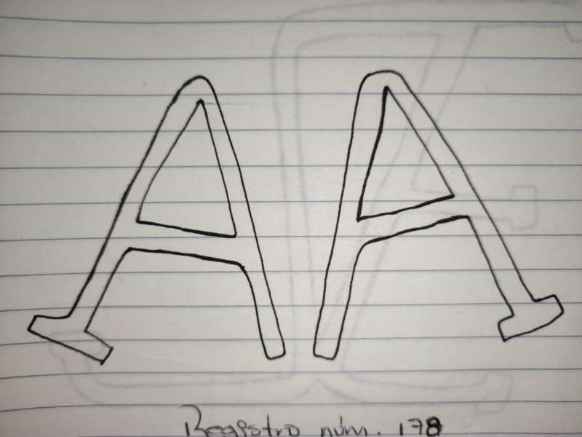 A A
Registro núm. 178